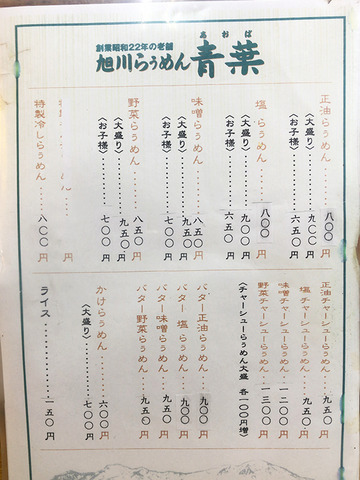 創業昭和22年の老舗
あおば
旭川らぅめん 青葉
正油らぅめん……八〇〇円
〈大盛り〉……九〇〇円
〈お子様〉……六五〇円
塩らぅめん……八〇〇円
〈大盛り〉……九〇〇円
〈お子様〉……六五〇円
味噌らぅめん……八五〇円
〈大盛り〉……九五〇円
〈お子様〉……七〇〇円
野菜らぅめん……八五〇円
〈大盛り〉……九五〇円
〈お子様〉……七〇〇円
めん……円
特製冷しらぅめん……八〇〇円
正油チャーシューらぅめん……九五〇円
塩チャーシューらぅめん……九五〇円
味噌チャーシューらぅめん……一二〇〇円
野菜チャーシューらぅめん……一三〇〇円
〈チャーシューらぅめん大盛 各一〇〇円増〉
バター正油らぅめん……九〇〇円
バター塩らぅめん……九〇〇円
バター味噌らぅめん……九五〇円
バター野菜らぅめん……九五〇円
かけらぅめん……六〇〇円
〈大盛り〉……七〇〇円
ライス……一五〇円